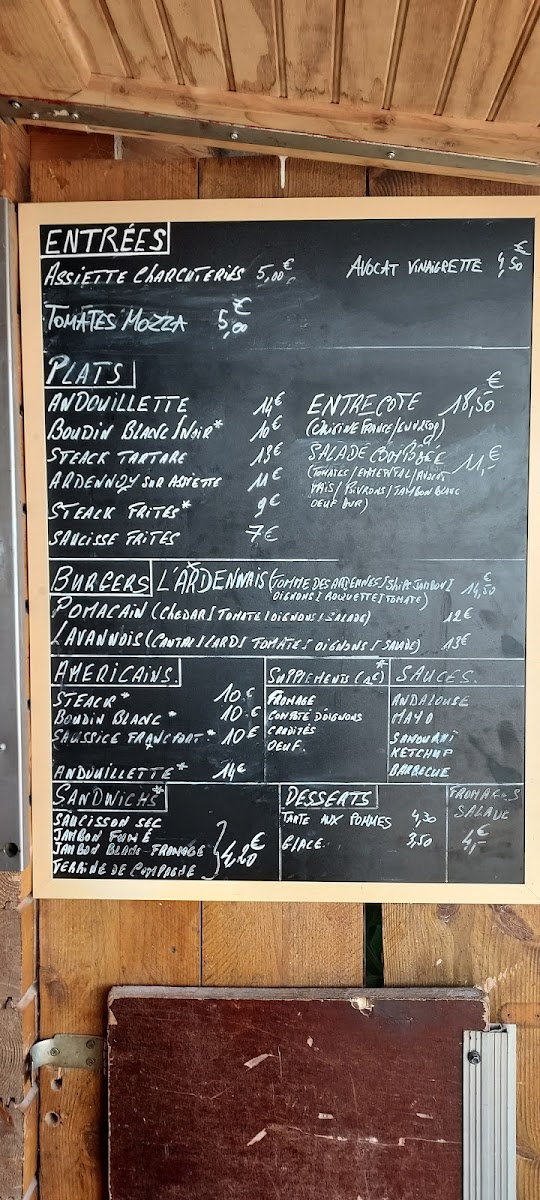 ENTRÉES
ASSIETTE CHARCUTERIES 5,00€
AVOCAT VINAIGRETTE 4,50€
TOMATES MOZZA 5,00€
PLATS
ANDOUILLETTE 14€
BOUDIN BLANC/NOIR* 10€
STEACK TARTARE 18€
ARDENNOY SUR ASSIETTE 11€
STEACK FRITES* 9€
SAUCISSE FRITES 7€
ENTRECOTE 18,50€
SALADE COMPOSÉE 11,-€
(TOMATES/EMMENTAL/AVOCAT
MAIS/POIVRONS/JAMBON BLANC
OEUF DUR)
BURGERS
L'ARDENNAIS (TOMME DES ARDENNES/ JAMBON/ 14,50€
OIGNONS/ROQUETTE/TOMATE)
POMACAIN (CHEDAR/TOMATE/OIGNONS/SALADE) 12€
LAVANNOIS (CANTAL/LARD/TOMATES/OIGNONS/SALADE) 13€
AMERICAINS.
STEACK* 10€
BOUDIN BLANC* 10€
SAUSSICE FRANCFORT* 10€
ANDOUILLETTE* 14€
SUPPLEMENTS (1€)*
FROMAGE
COMPOTÉ D'OIGNONS
CRUDITÉS
OEUF.
SAUCES.
ANDALOUSE
MAYO
SAMOURAÏ
KETCHUP
BARBECUE
SANDWICHS*
SAUCISSON SEC
JAMBON FUMÉ
JAMBON BLANC-FROMAGE
TERRINE DE CAMPAGNE
4,20€
DESSERTS
TARTE AUX POMMES 4,30
GLACE 3,50
FROMAGES
SALADE
4,-€